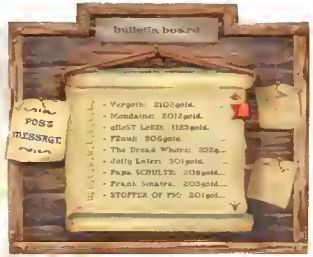 bulletin board
POST
MESSAGE
- Vergoth: 2102gold.
- Mondaine: 2012gold.
- gHoST LoRD: 1123gold.
- FZuul: 506gold.
- The Dread Whore: 332g...
- Jolly Later: 301gold. ...
- Papa SCHULTZ: 208gold...
- Frank Sinatra: 203gold...
- STOPPER OF PM: 201gol...